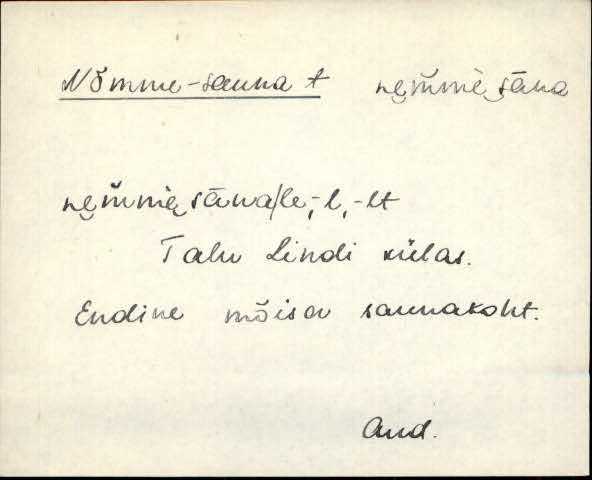 Nõmme-sauna t nę̆m̆mè sāna
nę̆m̆mè sāna/le, -l, -lt
Talu Lindi külas.
Endine mõisa saunakoht.
Aud.